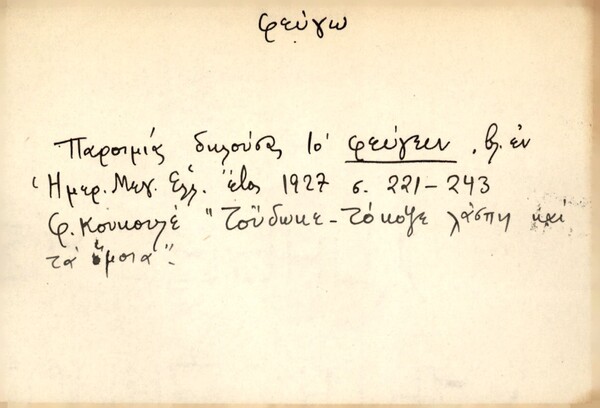 φεύγω
Παροιμίας δηλούσας τὸ φεύγειν, βλ. ἐν
Ἡμερ. Μεγ. Ἑλλ. ἔτος 1927 σ. 221-243
Φ. Κουκουλέ "Τοὔδωκε-τὄκοψε λάσπη καὶ
τὰ ὅμοια".